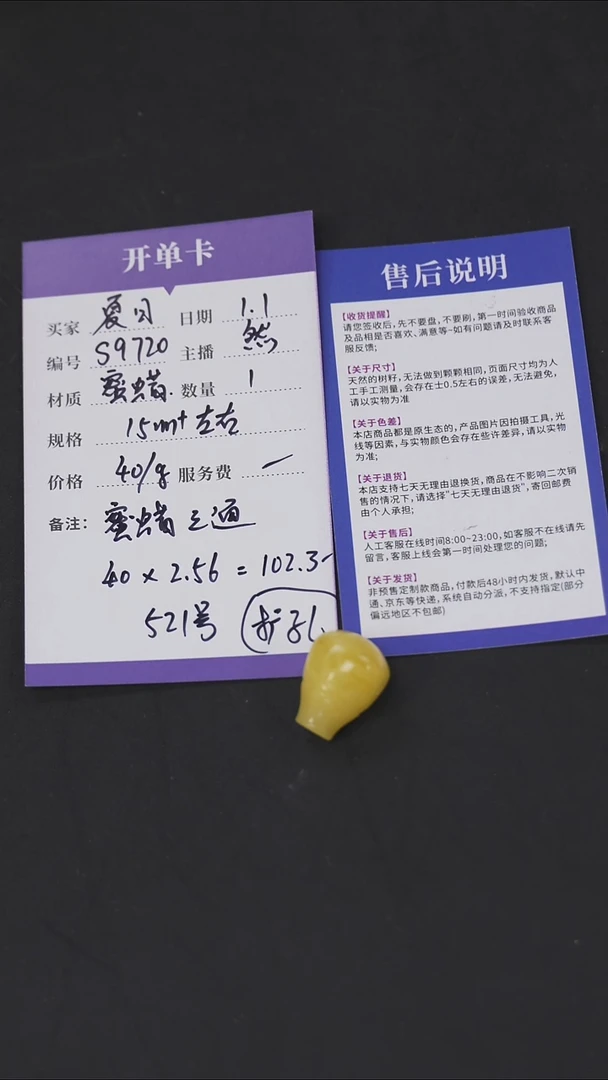 开单卡
买家 夏日 日期 1.1
编号 S9720 主播 然
材质 蜜蜡. 数量 1
规格 15mm+左右
价格 40/g 服务费 —
备注: 蜜蜡三通
40 × 2.56 = 102.3-
521号 扩孔
售后说明
【收货提醒】
请您签收后,先不要盘,不要刷,第一时间验收商品
及品相是否喜欢、满意等~如有问题请及时联系客
服反馈;
【关于尺寸】
天然的树籽,无法做到颗颗相同,页面尺寸均为人
工手工测量,会存在士0.5左右的误差,无法避免,
请以实物为准
【关于色差】
本店商品都是原生态的,产品图片因拍摄工具,光
线等因素,与实物颜色会存在些许差异,请以实物
为准;
【关于退货】
本店支持七天无理由退换货,商品在不影响二次销
售的情况下,请选择"七天无理由退货",寄回邮费
由个人承担;
【关于售后】
人工客服在线时间8:00~23:00,如客服不在线请先
留言,客服上线会第一时间处理您的问题;
【关于发货】
非预售定制款商品,付款后48小时内发货,默认中
通、京东等快递,系统自动分派,不支持指定(部分
偏远地区不包邮)